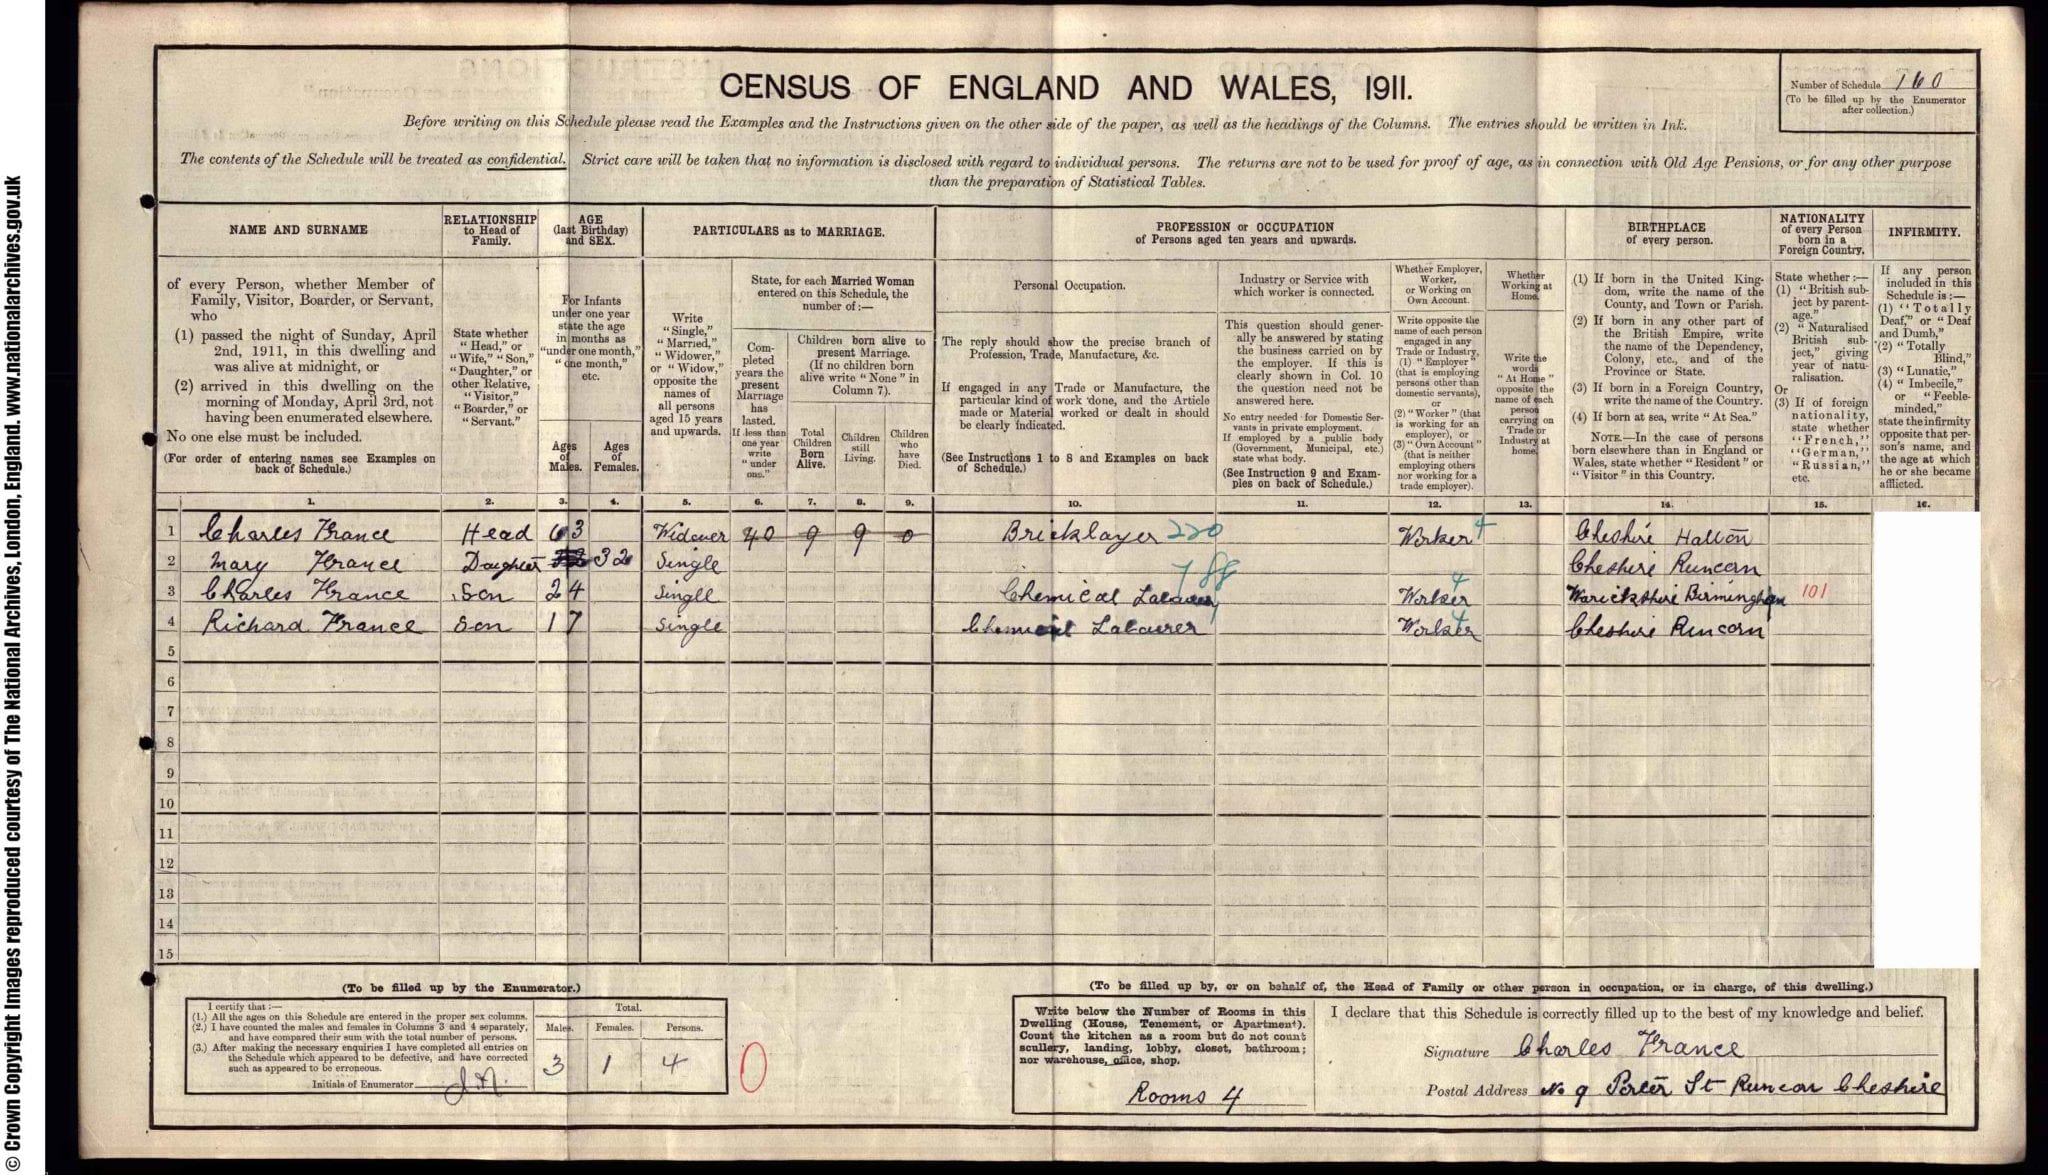 © Crown Copyright Images reproduced courtesy of The National Archives, London, England. www.nationalarchives.gov.uk
CENSUS OF ENGLAND AND WALES, 1911.
Number of Schedule 160
(To be filled up by the Enumerator
after collection.)
Before writing on this Schedule please read the Examples and the Instructions given on the other side of the paper, as well as the headings of the Columns. The entries should be written in Ink.
The contents of the Schedule will be treated as confidential. Strict care will be taken that no information is disclosed with regard to individual persons. The returns are not to be used for proof of age, as in connection with Old Age Pensions, or for any other purpose
than the preparation of Statistical Tables.
NAME AND SURNAME
of every Person, whether Member of
Family, Visitor, Boarder, or Servant,
who
(1) passed the night of Sunday, April
2nd, 1911, in this dwelling and
was alive at midnight, or
(2) arrived in this dwelling on the
morning of Monday, April 3rd, not
having been enumerated elsewhere.
No one else must be included.
(For order of entering names see Examples on
back of Schedule.)
RELATIONSHIP
to Head of
Family.
State whether
"Head," or
"Wife," "Son,"
"Daughter," or
other Relative,
"Visitor,"
"Boarder," or
"Servant."
AGE
(last Birthday)
and SEX.
For Infants
under one year
state the age
in months as
"under one month,"
"one month,"
etc.
Ages
of
Males.
Ages
of
Females.
PARTICULARS as to MARRIAGE.
Write
"Single,"
"Married,"
"Widower,"
or "Widow,"
opposite the
names of
all persons
aged 15 years
and upwards.
State, for each Married Woman
entered on this Schedule, the
number of:—
Com-
pleted
years the
present
Marriage
has
lasted.
If less than
one year
write
"under
one."
Children born alive to
present Marriage.
(If no children born
alive write "None" in
Column 7).
Total
Children
Born
Alive.
Children
still
Living.
Children
who
have
Died.
PROFESSION or OCCUPATION
of Persons aged ten years and upwards.
Personal Occupation.
The reply should show the precise branch of
Profession, Trade, Manufacture, &c.
If engaged in any Trade or Manufacture, the
particular kind of work done, and the Article
made or Material worked or dealt in should
be clearly indicated.
(See Instructions 1 to 8 and Examples on back
of Schedule.)
Industry or Service with
which worker is connected.
This question should gener-
ally be answered by stating
the business carried on by
the employer. If this is
clearly shown in Col. 10
the question need not be
answered here.
No entry needed for Domestic Ser-
vants in private employment.
If employed by a public body
(Government, Municipal, etc.)
state what body.
(See Instruction 9 and Exam-
ples on back of Schedule.)
Whether Employer,
Worker,
or Working on
Own Account.
Write opposite the
name of each person
engaged in any
Trade or Industry,
(1) "Employer"
(that is employing
persons other than
domestic servants),
or
(2) "Worker" (that
is working for an
employer), or
(3) "Own Account"
(that is neither
employing others
nor working for a
trade employer).
Whether
Working at
Home.
Write the
words
"At Home"
opposite the
name of each
person
carrying on
Trade or
Industry at
home.
BIRTHPLACE
of every person.
(1) If born in the United King-
dom, write the name of the
County, and Town or Parish.
(2) If born in any other part of
the British Empire, write
the name of the Dependency,
Colony, etc., and of the
Province or State.
(3) If born in a Foreign Country,
write the name of the Country.
(4) If born at sea, write "At Sea."
NOTE.—In the case of persons
born elsewhere than in England or
Wales, state whether "Resident" or
"Visitor" in this Country.
NATIONALITY
of every Person
born in a
Foreign Country.
State whether:—
(1) "British sub-
ject by parent-
age."
(2) "Naturalised
British sub-
ject," giving
year of natu-
ralisation.
Or
(3) If of foreign
nationality,
state whether
"French,"
"German,"
"Russian,"
etc.
INFIRMITY.
If any person
included in this
Schedule is:—
(1) "Totally
Deaf," or "Deaf
and Dumb,"
(2) "Totally
Blind,"
(3) "Lunatic,"
(4) "Imbecile,"
or "Feeble-
minded,"
state the infirmity
opposite that per-
son's name, and
the age at which
he or she became
afflicted.
1. 2. 3. 4. 5. 6. 7. 8. 9. 10. 11. 12. 13. 14. 15. 16.
1 Charles France Head 63 Widower 40 9 9 0 Bricklayer 220 Worker 4 Cheshire Halton
2 Mary France Daughter 32 Single Cheshire Runcorn
788
3 Charles France Son 24 Single Chemical Labourer Worker 4 Warickshire Birmingham 101
4 Richard France Son 17 Single Chemical Labourer Worker 4 Cheshire Runcorn
5
6
7
8
9
10
11
12
13
14
15
(To be filled up by the Enumerator.)
I certify that:—
(1.) All the ages on this Schedule are entered in the proper sex columns.
(2.) I have counted the males and females in Columns 3 and 4 separately,
and have compared their sum with the total number of persons.
(3.) After making the necessary enquiries I have completed all entries on
the Schedule which appeared to be defective, and have corrected
such as appeared to be erroneous.
Initials of Enumerator
Total.
Males. Females. Persons.
3 1 4
0
(To be filled up by, or on behalf of, the Head of Family or other person in occupation, or in charge, of this dwelling.)
Write below the Number of Rooms in this
Dwelling (House, Tenement, or Apartment).
Count the kitchen as a room but do not count
scullery, landing, lobby, closet, bathroom;
nor warehouse, office, shop.
Rooms 4
I declare that this Schedule is correctly filled up to the best of my knowledge and belief.
Signature Charles France
Postal Address No 9 Porter St Runcorn Cheshire